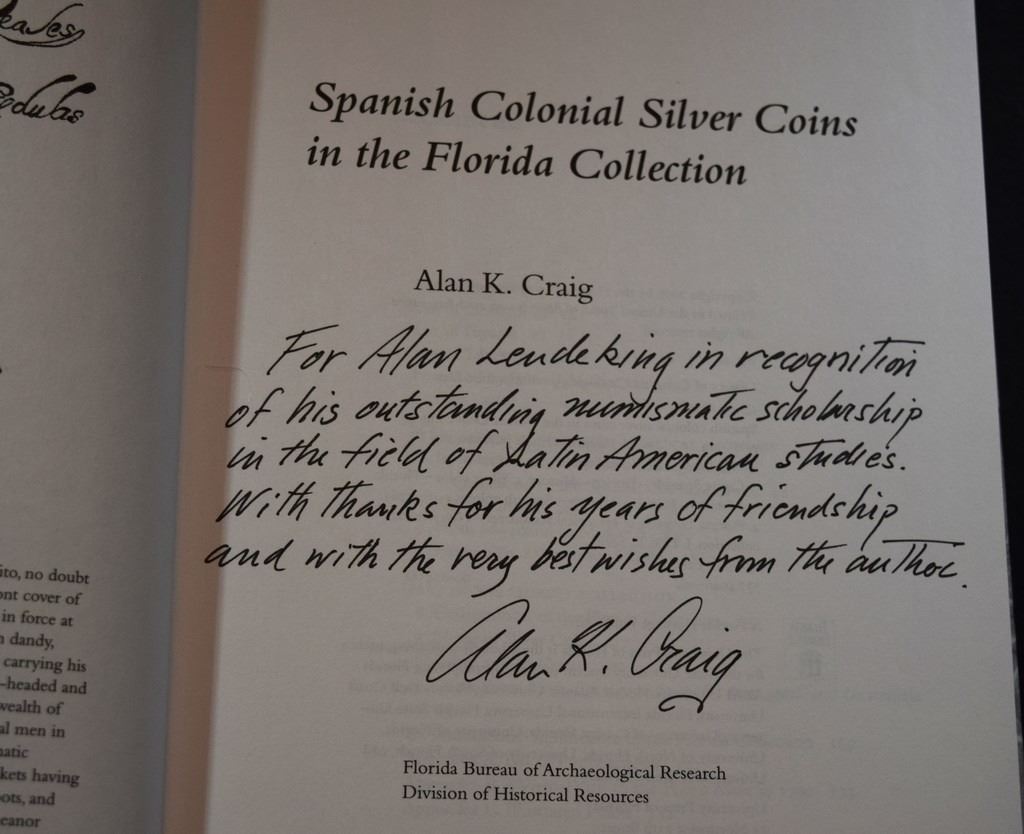 edulas
ito, no doubt
ont cover of
in force at
dandy,
carrying his
-headed and
wealth of
al men in
matic
kets having
ots, and
eanor
Spanish Colonial Silver Coins
in the Florida Collection
Alan K. Craig
For Alan Leudeking in recognition
of his outstanding numismatic scholarship
in the field of Latin American studies.
With thanks for his years of friendship
and with the very best wishes from the author.
Alan K. Craig
Florida Bureau of Archaeological Research
Division of Historical Resources